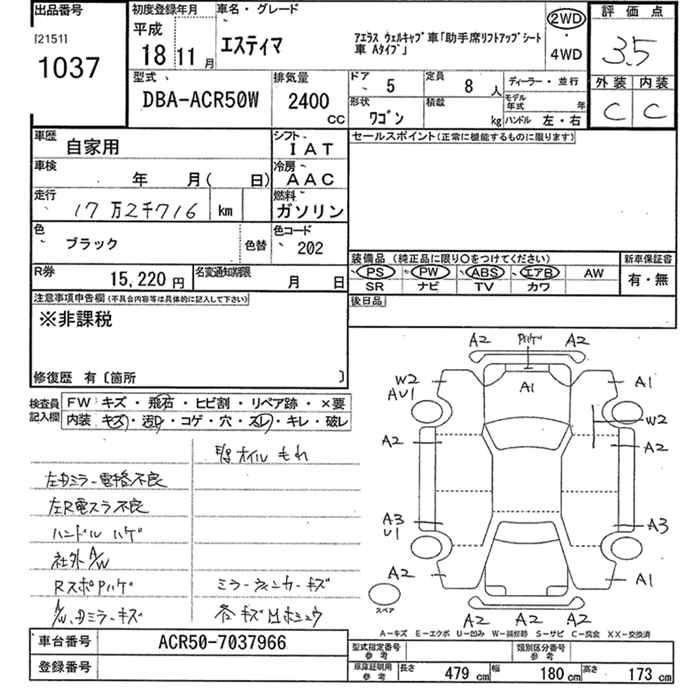 出品番号
[2151]
1037
初度登録年月
平成
18 11 月
車名・グレード
エスティマ
アエラス ウェルキャブ車「助手席リフトアップシート
車 Aタイプ」
2WD
・
4WD
評価点
3.5
外装 内装
C C
型式
DBA-ACR50W
排気量
2400
cc
ドア
5
定員
8 人
ディーラー・並行
形状
ワゴン
積載
kg
モデル
年式
年
ハンドル 左・右
車歴
自家用
シフト
IAT
セールスポイント(正常に機能するものに限ります)
車検
年 月( 日)
冷房
AAC
走行
17万2千716 km
燃料
ガソリン
色
ブラック
色替
色コード
202
装備品 (純正品に限り○をつけてください)
新車保証書
PS PW ABS エアB AW
SR ナビ TV カワ
有・無
R券
15,220 円
名変通知期限
月 日
後日品
注意事項申告欄(不具合内容等は具体的に記入して下さい)
※非課税
修復歴 有〔箇所 〕
検査員
記入欄
FW キズ・飛石・ヒビ割・リペア跡・×要
内装 キズ・汚D・コゲ・穴・スレ・キレ・破レ
オイルもれ
左ミラー電格不良
左R電スラ不良
ハンドル ハゲ
社外A/W
RスポPハゲ
ミラーウィンカーキズ
A/W、ミラーキズ
A2 Pハゲ A2
W2 A1 A1
AU1
W2
A2 A2
A3 A3
U1
A2 A1
スペア
A2 A2 A2
A-キズ E-エクボ U-凹み W-補修跡 S-サビ C-腐食 XX-交換済
車台番号
ACR50-7037966
登録番号
型式指定番号
参考
類別区分番号
参考
車庫証明用
参考
長さ 479 cm 幅 180 cm 高さ 173 cm